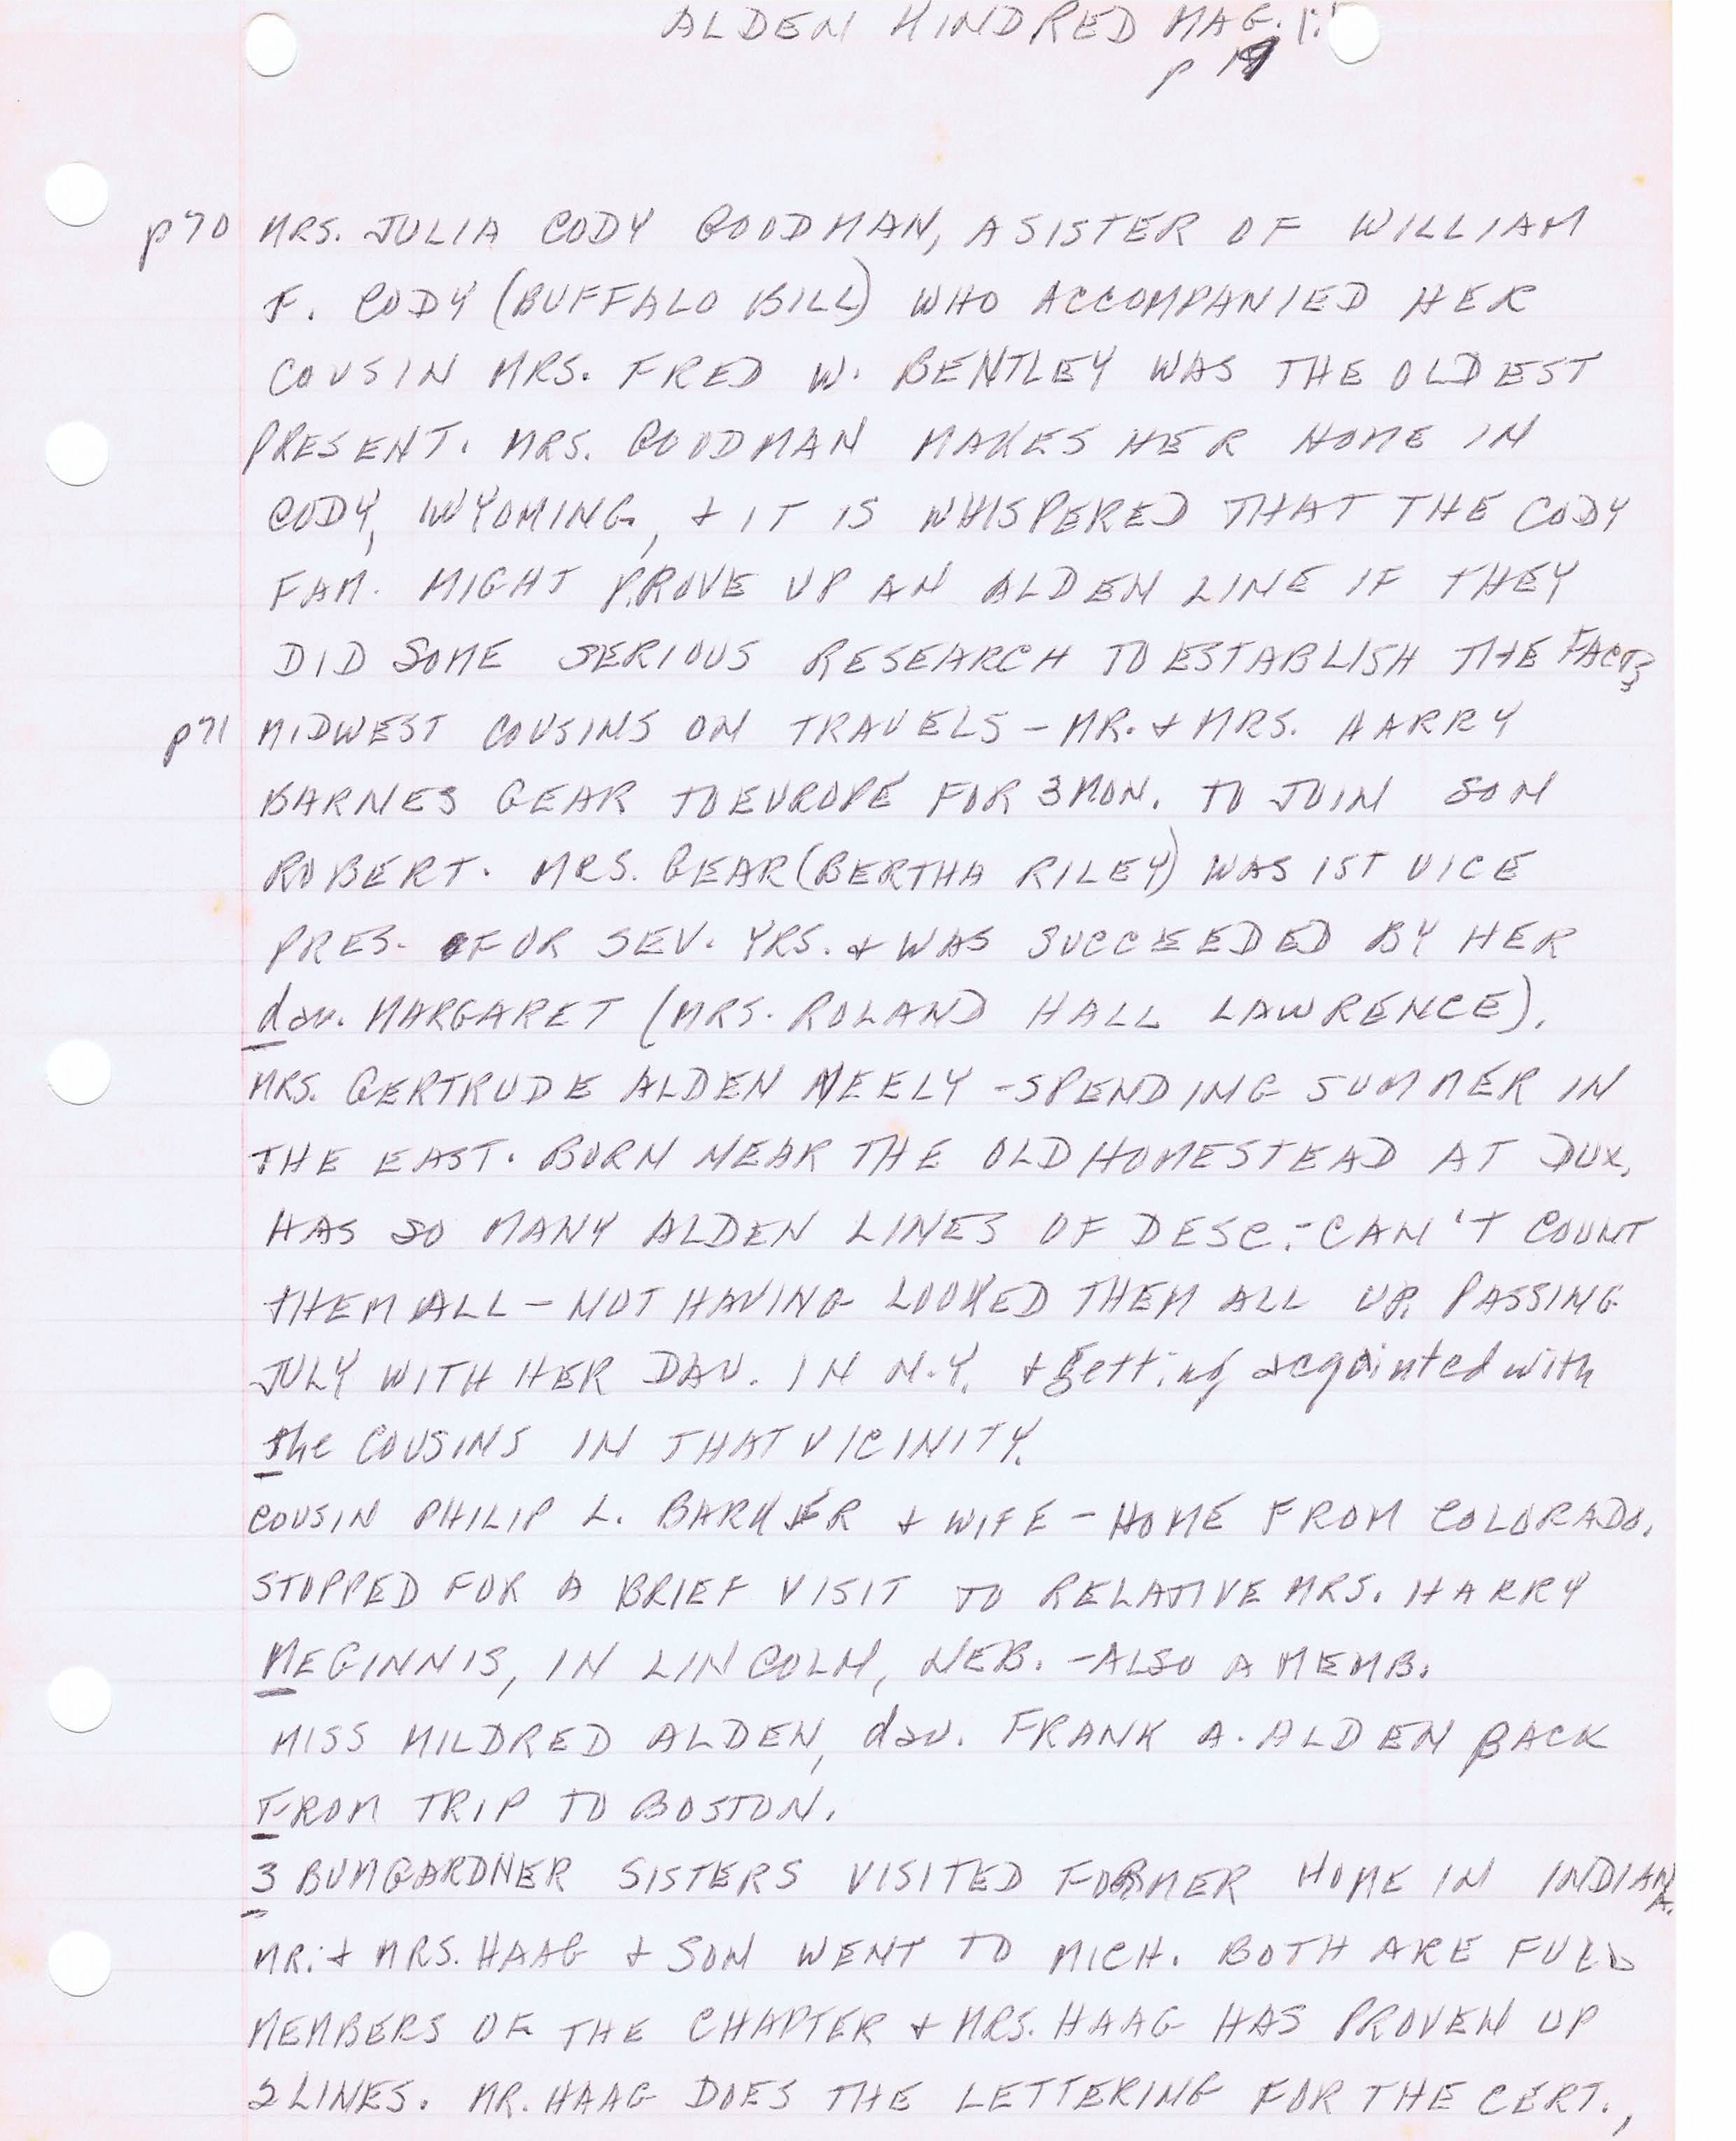 ALDEN HINDRED MAG.
p 19
p70 MRS. JULIA CODY GOODMAN, A SISTER OF WILLIAM
F. CODY (BUFFALO BILL) WHO ACCOMPANIED HER
COUSIN MRS. FRED W. BENTLEY WAS THE OLDEST
PRESENT. MRS. GOODMAN MAKES HER HOME IN
CODY, WYOMING, + IT IS WHISPERED THAT THE CODY
FAM. MIGHT PROVE UP AN ALDEN LINE IF THEY
DID SOME SERIOUS RESEARCH TO ESTABLISH THE FACTS
p71 MIDWEST COUSINS ON TRAVELS - MR. + MRS. HARRY
BARNES GEAR TO EUROPE FOR 3 MON. TO JOIN SON
ROBERT. MRS. GEAR (BERTHA RILEY) WAS 1ST VICE
PRES. FOR SEV. YRS. + WAS SUCCEEDED BY HER
dau. MARGARET (MRS. ROLAND HALL LAWRENCE).
MRS. GERTRUDE ALDEN NEELY - SPENDING SUMMER IN
THE EAST. BORN NEAR THE OLD HOMESTEAD AT DUX.
HAS SO MANY ALDEN LINES OF DESC. - CAN'T COUNT
THEM ALL - NOT HAVING LOOKED THEM ALL UP. PASSING
JULY WITH HER DAU. IN N.Y. + getting acqainted with
the COUSINS IN THAT VICINITY.
COUSIN PHILIP L. BARKER + WIFE - HOME FROM COLORADO.
STOPPED FOR A BRIEF VISIT TO RELATIVE MRS. HARRY
MEGINNIS, IN LINCOLN, NEB. - ALSO A MEMB.
MISS MILDRED ALDEN, dau. FRANK A. ALDEN BACK
FROM TRIP TO BOSTON.
3 BUMGARDNER SISTERS VISITED FORMER HOME IN INDIANA.
MR. + MRS. HAAG + SON WENT TO MICH. BOTH ARE FULL
MEMBERS OF THE CHAPTER + MRS. HAAG HAS PROVEN UP
2 LINES. MR. HAAG DOES THE LETTERING FOR THE CERT.,